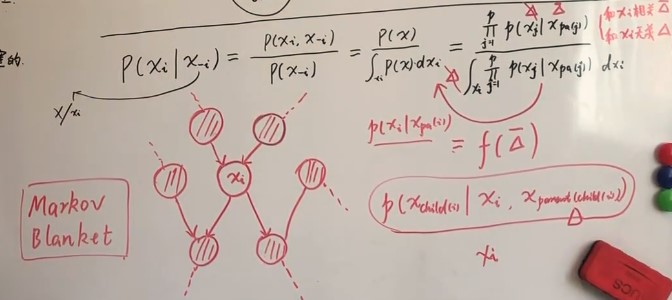 的.
P(xi | x-i) = P(xi, x-i) / P(x-i) = P(x) / ∫xi P(x)·dxi = ∏j=1^p p(xj | xpa(j)) / ∫xi ∏j=1^p p(xj | xpa(j)) dxi
Δ Δ̄ 和xi相关 Δ̄
和xi无关 Δ
Δ
x/xi
p(xi | xpa(i))
= f(Δ̄)
xi
p(xchild(i) | xi, xparent(child(i)))
Δ
Markov
Blanket
xi
UCS